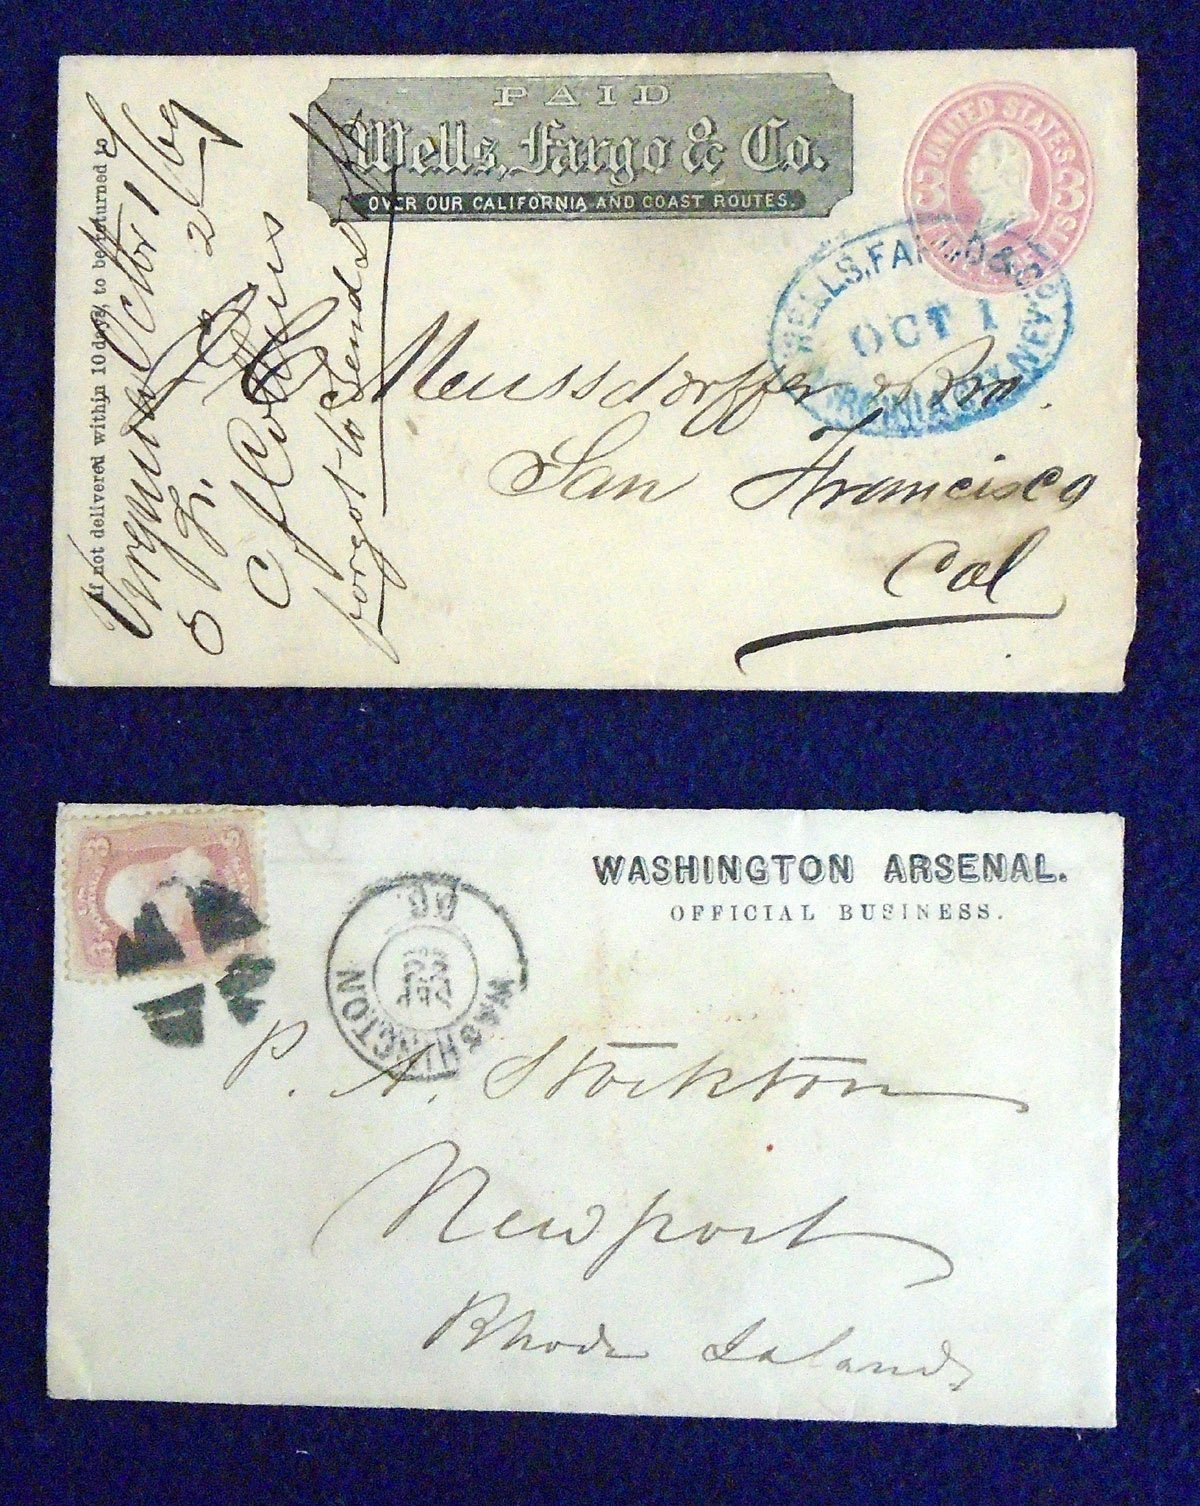 PAID
Wells, Fargo & Co.
OVER OUR CALIFORNIA AND COAST ROUTES.
UNITED STATES
3 3
WELLS, FARGO & CO.
OCT 1
VIRGINIA CITY, NEV.
If not delivered within 10 days, to be returned to
Virginia Octbr 1/69
forgot to Send
Meussdorffer & Bro.
San Francisco
Cal
WASHINGTON ARSENAL.
OFFICIAL BUSINESS.
3 3
WASHINGTON
P. A. Stockton
Newport
Rhode Island